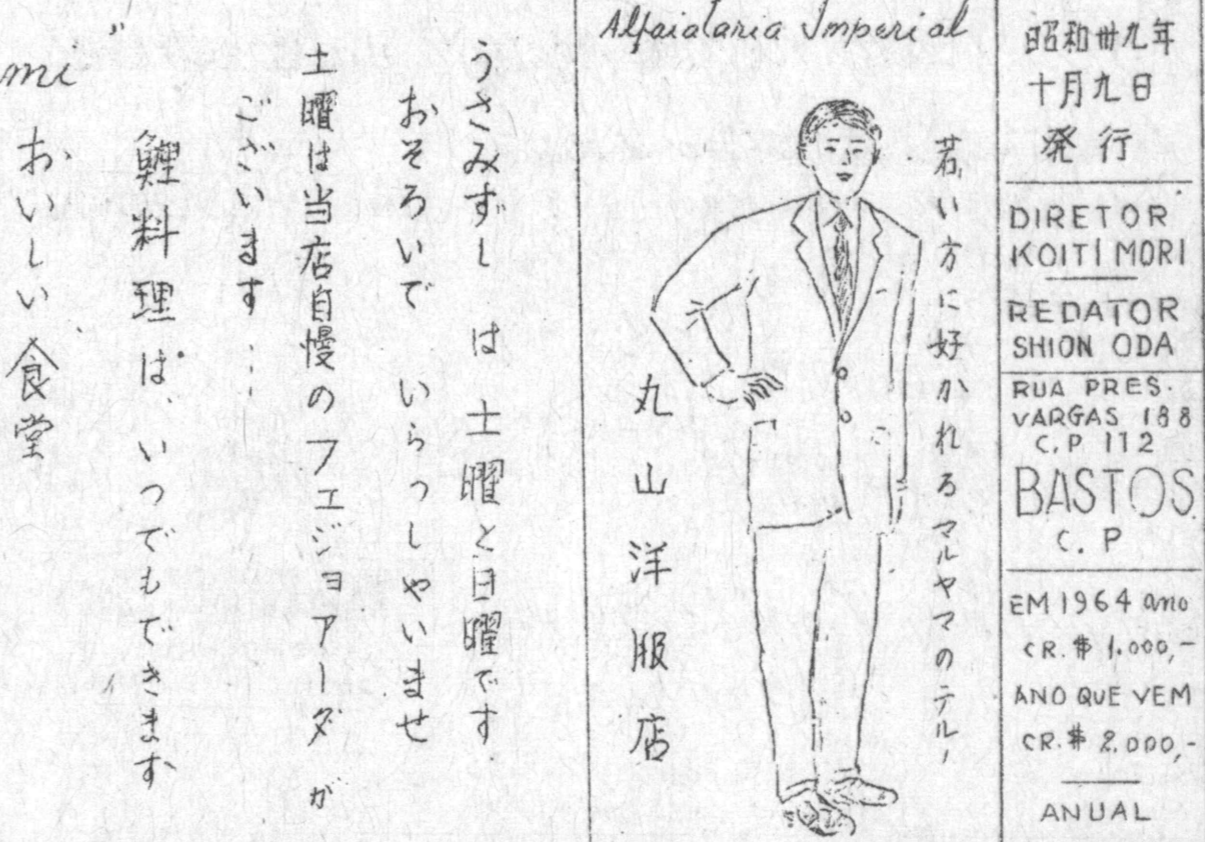 昭和卅九年
十月九日
発行
DIRETOR
KOITI MORI
REDATOR
SHION ODA
RUA PRES.
VARGAS 188
C.P 112
BASTOS
C.P
EM 1964 ano
CR.$ 1.000,-
ANO QUE VEM
CR.$ 2.000,-
ANUAL
Alfaiataria Imperial
若い方に好かれるマルヤマのテルノ
丸山洋服店
うさみずし は 土曜と日曜です
おそろいで いらっしゃいませ
土曜は当店自慢のフェジョアーダ が
ございます…
鯉料理は いつでもできます
おいしい食堂
mi